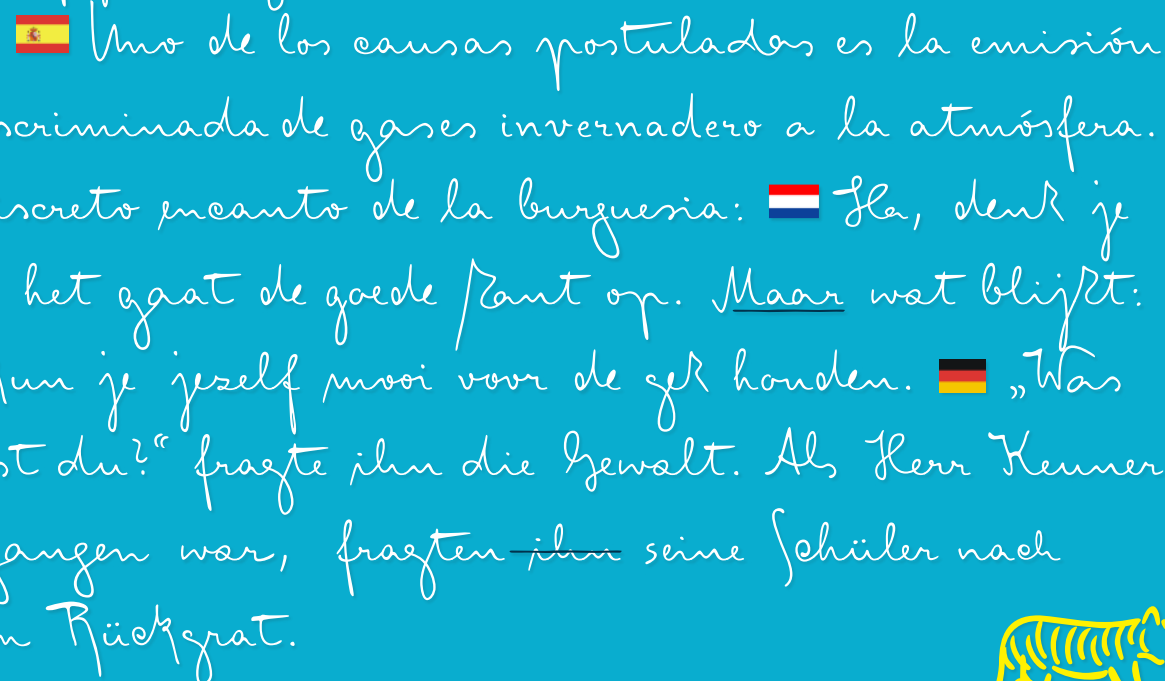 Uno de los causas postulados es la emisión
scriminada de gases invernadero a la atmósfera.
screto encanto de la burguesia: Ha, denk je
het gaat de goede kant op. Maar wat blijkt:
kun je jezelf mooi voor de gek houden. „Was
st du?“ fragte ihn die Gewalt. Als Herr Keuner
gangen war, fragten ihn seine Schüler nach
n Rückgrat.